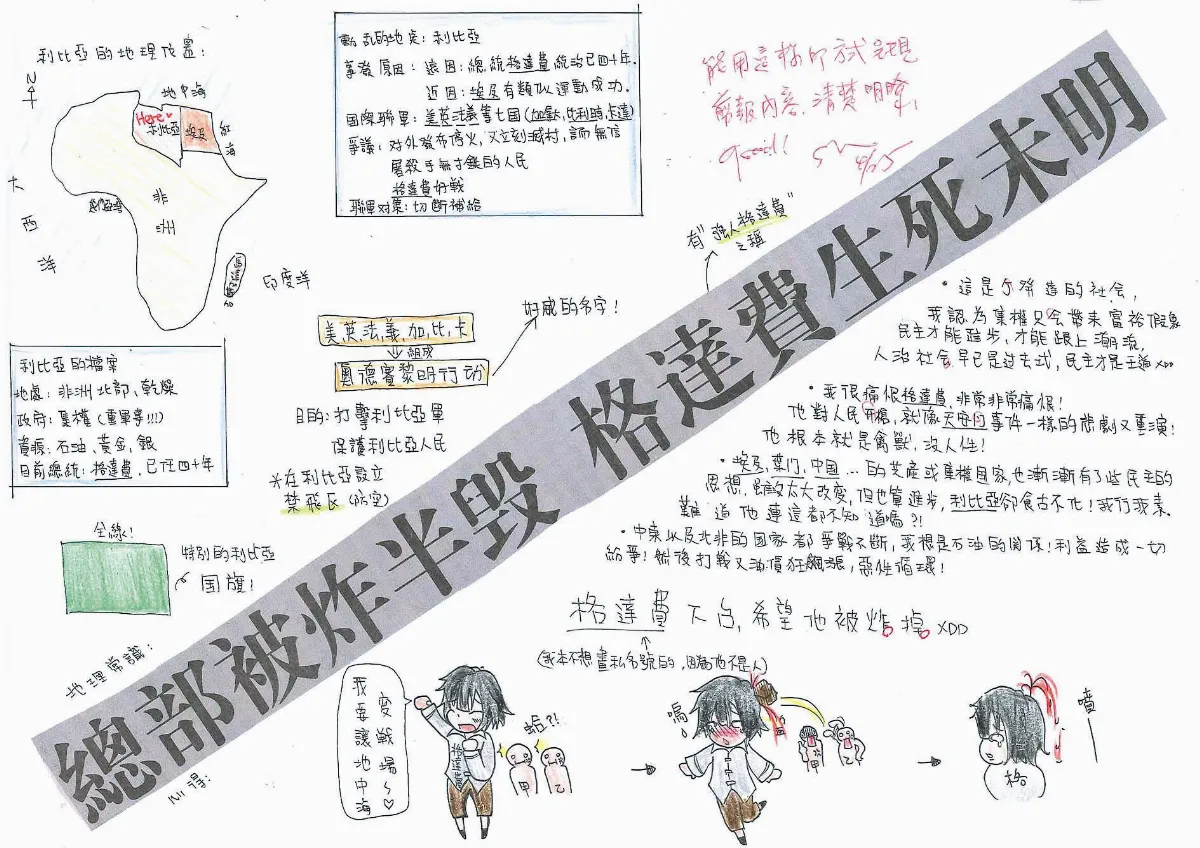 利比亞的地理位置:
N
地中海
Here
利比亞
埃及
紅海
大西洋
非洲
印度洋
動亂的地點:利比亞
事發原因:遠因:總統格達費統治已四十年.
近因:埃及有類似運動成功.
國際聯軍:美英法義等七國(加拿大,比利時,卡達)
爭議:对外發布停火,又立刻滅村,言而無信
屠殺手無寸鐵的人民
格達費好戰
聯軍对策:切斷補給
能用這樣的方式呈現
剪報內容.清楚明瞭!
good!
4/25
利比亞的檔案
地處:非洲北部、乾燥
政府:集權(重軍事!!!)
資源:石油、黃金、銀
目前總統:格達費.已任四十年
美,英,法,義,加,比,卡
組成
奧德賽黎明行動
好威的名字!
目的:打擊利比亞軍
保護利比亞人民
※在利比亞設立
禁飛區(防空)
有"強人格達費"
之稱
全綠!
特別的利比亞
国旗!
總部被炸半毀 格達費生死未明
・這是改造的社会,
我認為集權只会帶來富裕假象
民主才能進步,才能跟上潮流,
人治社会早已是过去式,民主才是王道XDD
・我很痛恨格達費,非常非常痛恨!
他對人民開槍,就像天安門事件一樣的悲劇又重演!
他根本就是禽獸,沒人性!
・埃及,葉門,中國...的共產或集權国家,也漸漸有了些民主的
思想,雖說沒太大改變,但也算進步,利比亞卻食古不化!我行我素.
難道他連這都不知道嗎?!
・中東以及北非的国家都爭戰不斷,我想是石油的関係!利益造成一切
紛爭!然後打戰又油價狂飆漲,惡性循環!
格達費下台,希望他被炸掉XDD
(我本不想畫私名號的,因為他不是人)
地理常識:
心得:
我要讓地中海
變戰場~♡
蛤?!
甲
乙
嗚
甲
乙
格
噴—